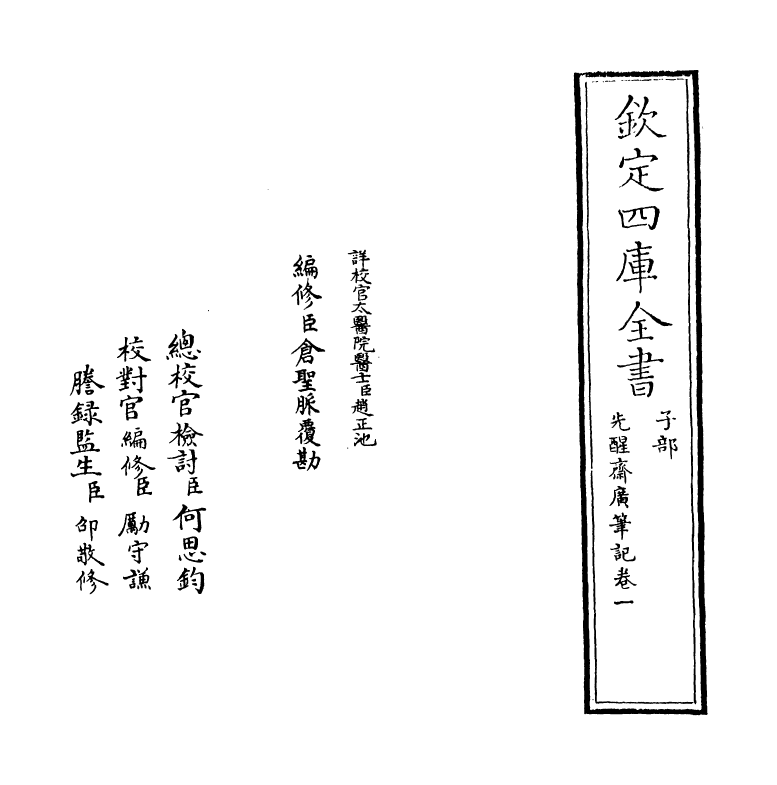 欽定四庫全書
子部
先醒齋廣筆記卷一
詳校官太醫院醫士臣趙正池
編修臣倉聖脈覆勘
總校官檢討臣何思鈞
校對官編修臣勵守謙
謄錄監生臣邵敬修